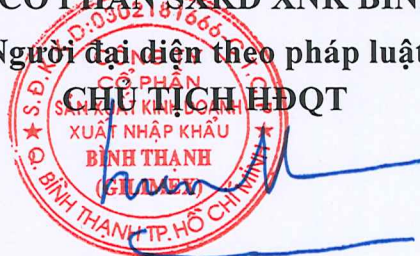 CỔ PHẦN SXKD XNK BÌN
Người đại diện theo pháp luật
CHỦ TỊCH HĐQT
S.Đ.K.K.D:0302181666
CÔNG TY
CỔ PHẦN
SẢN XUẤT KINH DOANH
XUẤT NHẬP KHẨU
BÌNH THẠNH
(GILIMEX)
Q. BÌNH THẠNH TP. HỒ CHÍ MINH